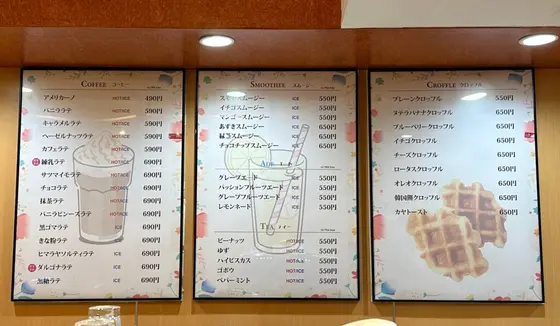 COFFEE コーヒー
アメリカーノ HOT/ICE 490円
バニララテ HOT/ICE 590円
キャラメルラテ HOT/ICE 590円
ヘーゼルナッツラテ HOT/ICE 590円
カフェラテ HOT/ICE 590円
練乳ラテ HOT/ICE 690円
サツマイモラテ HOT/ICE 690円
チョコラテ HOT/ICE 690円
抹茶ラテ HOT/ICE 690円
バニラビーンズラテ HOT/ICE 690円
黒ゴマラテ ICE 690円
きな粉ラテ ICE 690円
ヒマラヤソルティラテ ICE 690円
ダルゴナラテ ICE 690円
黒糖ラテ ICE 690円
SMOOTHIE スムージー
スムージー ICE 550円
イチゴスムージー ICE 550円
マンゴースムージー ICE 550円
あずきスムージー ICE 650円
スムージー ICE 650円
チョコチップスムージー ICE 650円
ADE エード
グレープエード ICE 550円
パッションフルーツエード ICE 550円
グレープフルーツエード ICE 550円
レモンネード ICE 550円
TEA ティー
ピーナッツ HOT/ICE 550円
ゆず HOT/ICE 550円
ハイビスカス HOT/ICE 550円
ゴボウ HOT/ICE 550円
ペパーミント HOT/ICE 550円
CROFFLE クロッフル
プレーンクロッフル 550円
ヌテラバナナクロッフル 650円
ブルーベリークロッフル 650円
イチゴクロッフル 650円
チーズクロッフル 650円
ロータスクロッフル 650円
オレオクロッフル 650円
韓国餅クロッフル 650円
カヤトースト 650円